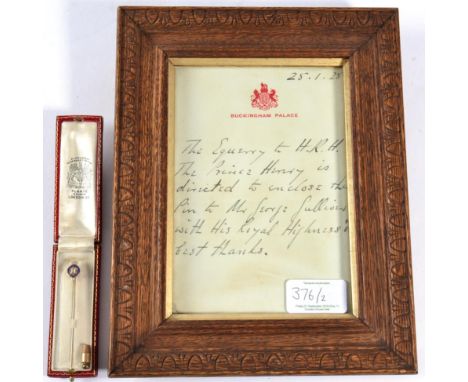 25.1.28
BUCKINGHAM PALACE
The Equerry to H.R.H.
The Prince Henry is
directed to enclose the
Pin to Mr George
with His Royal Highness's
best thanks.
376/2